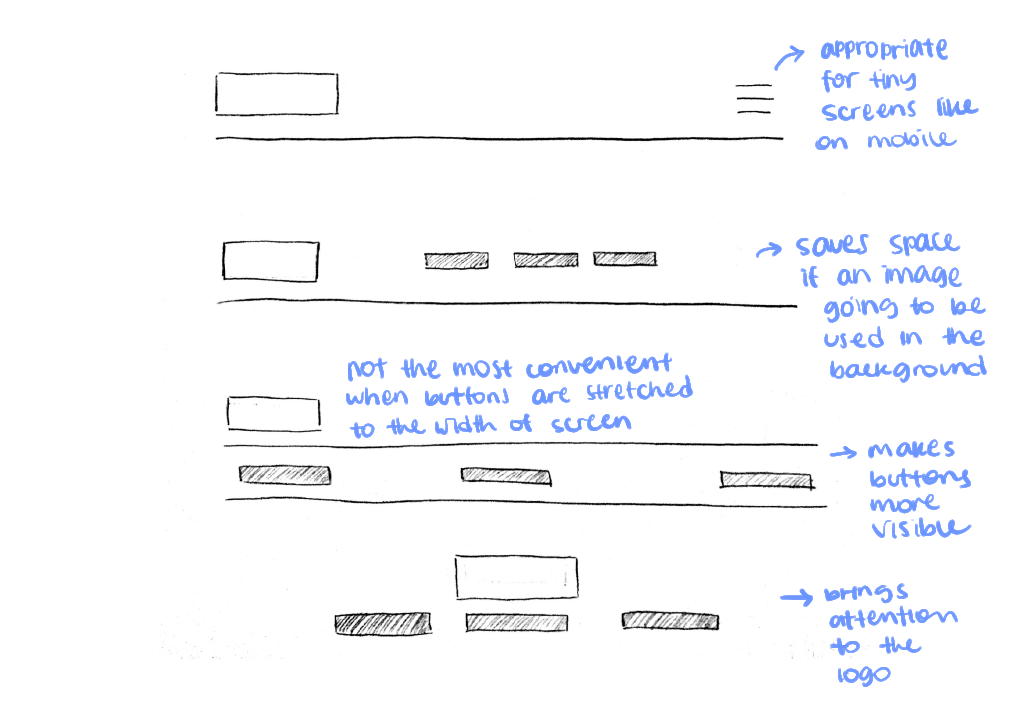 appropriate
for tiny
screens like
on mobile
saves space
if an image
going to be
used in the
background
not the most convenient
when buttons are stretched
to the width of screen
makes
buttons
more
visible
brings
attention
to the
logo